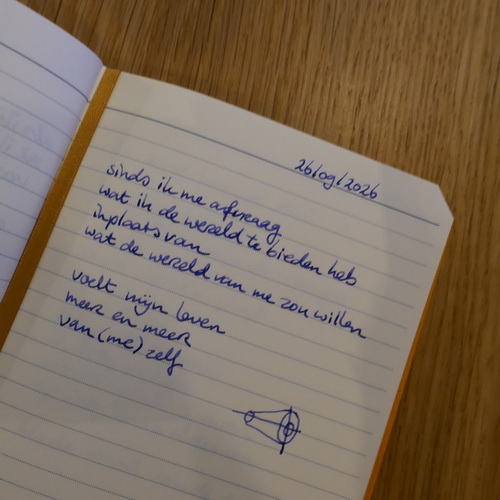 26/09/2026
sinds ik me afvraag
wat ik de wereld te bieden heb
inplaats van
wat de wereld van me zou willen
voelt mijn leven
meer en meer
van (me) zelf